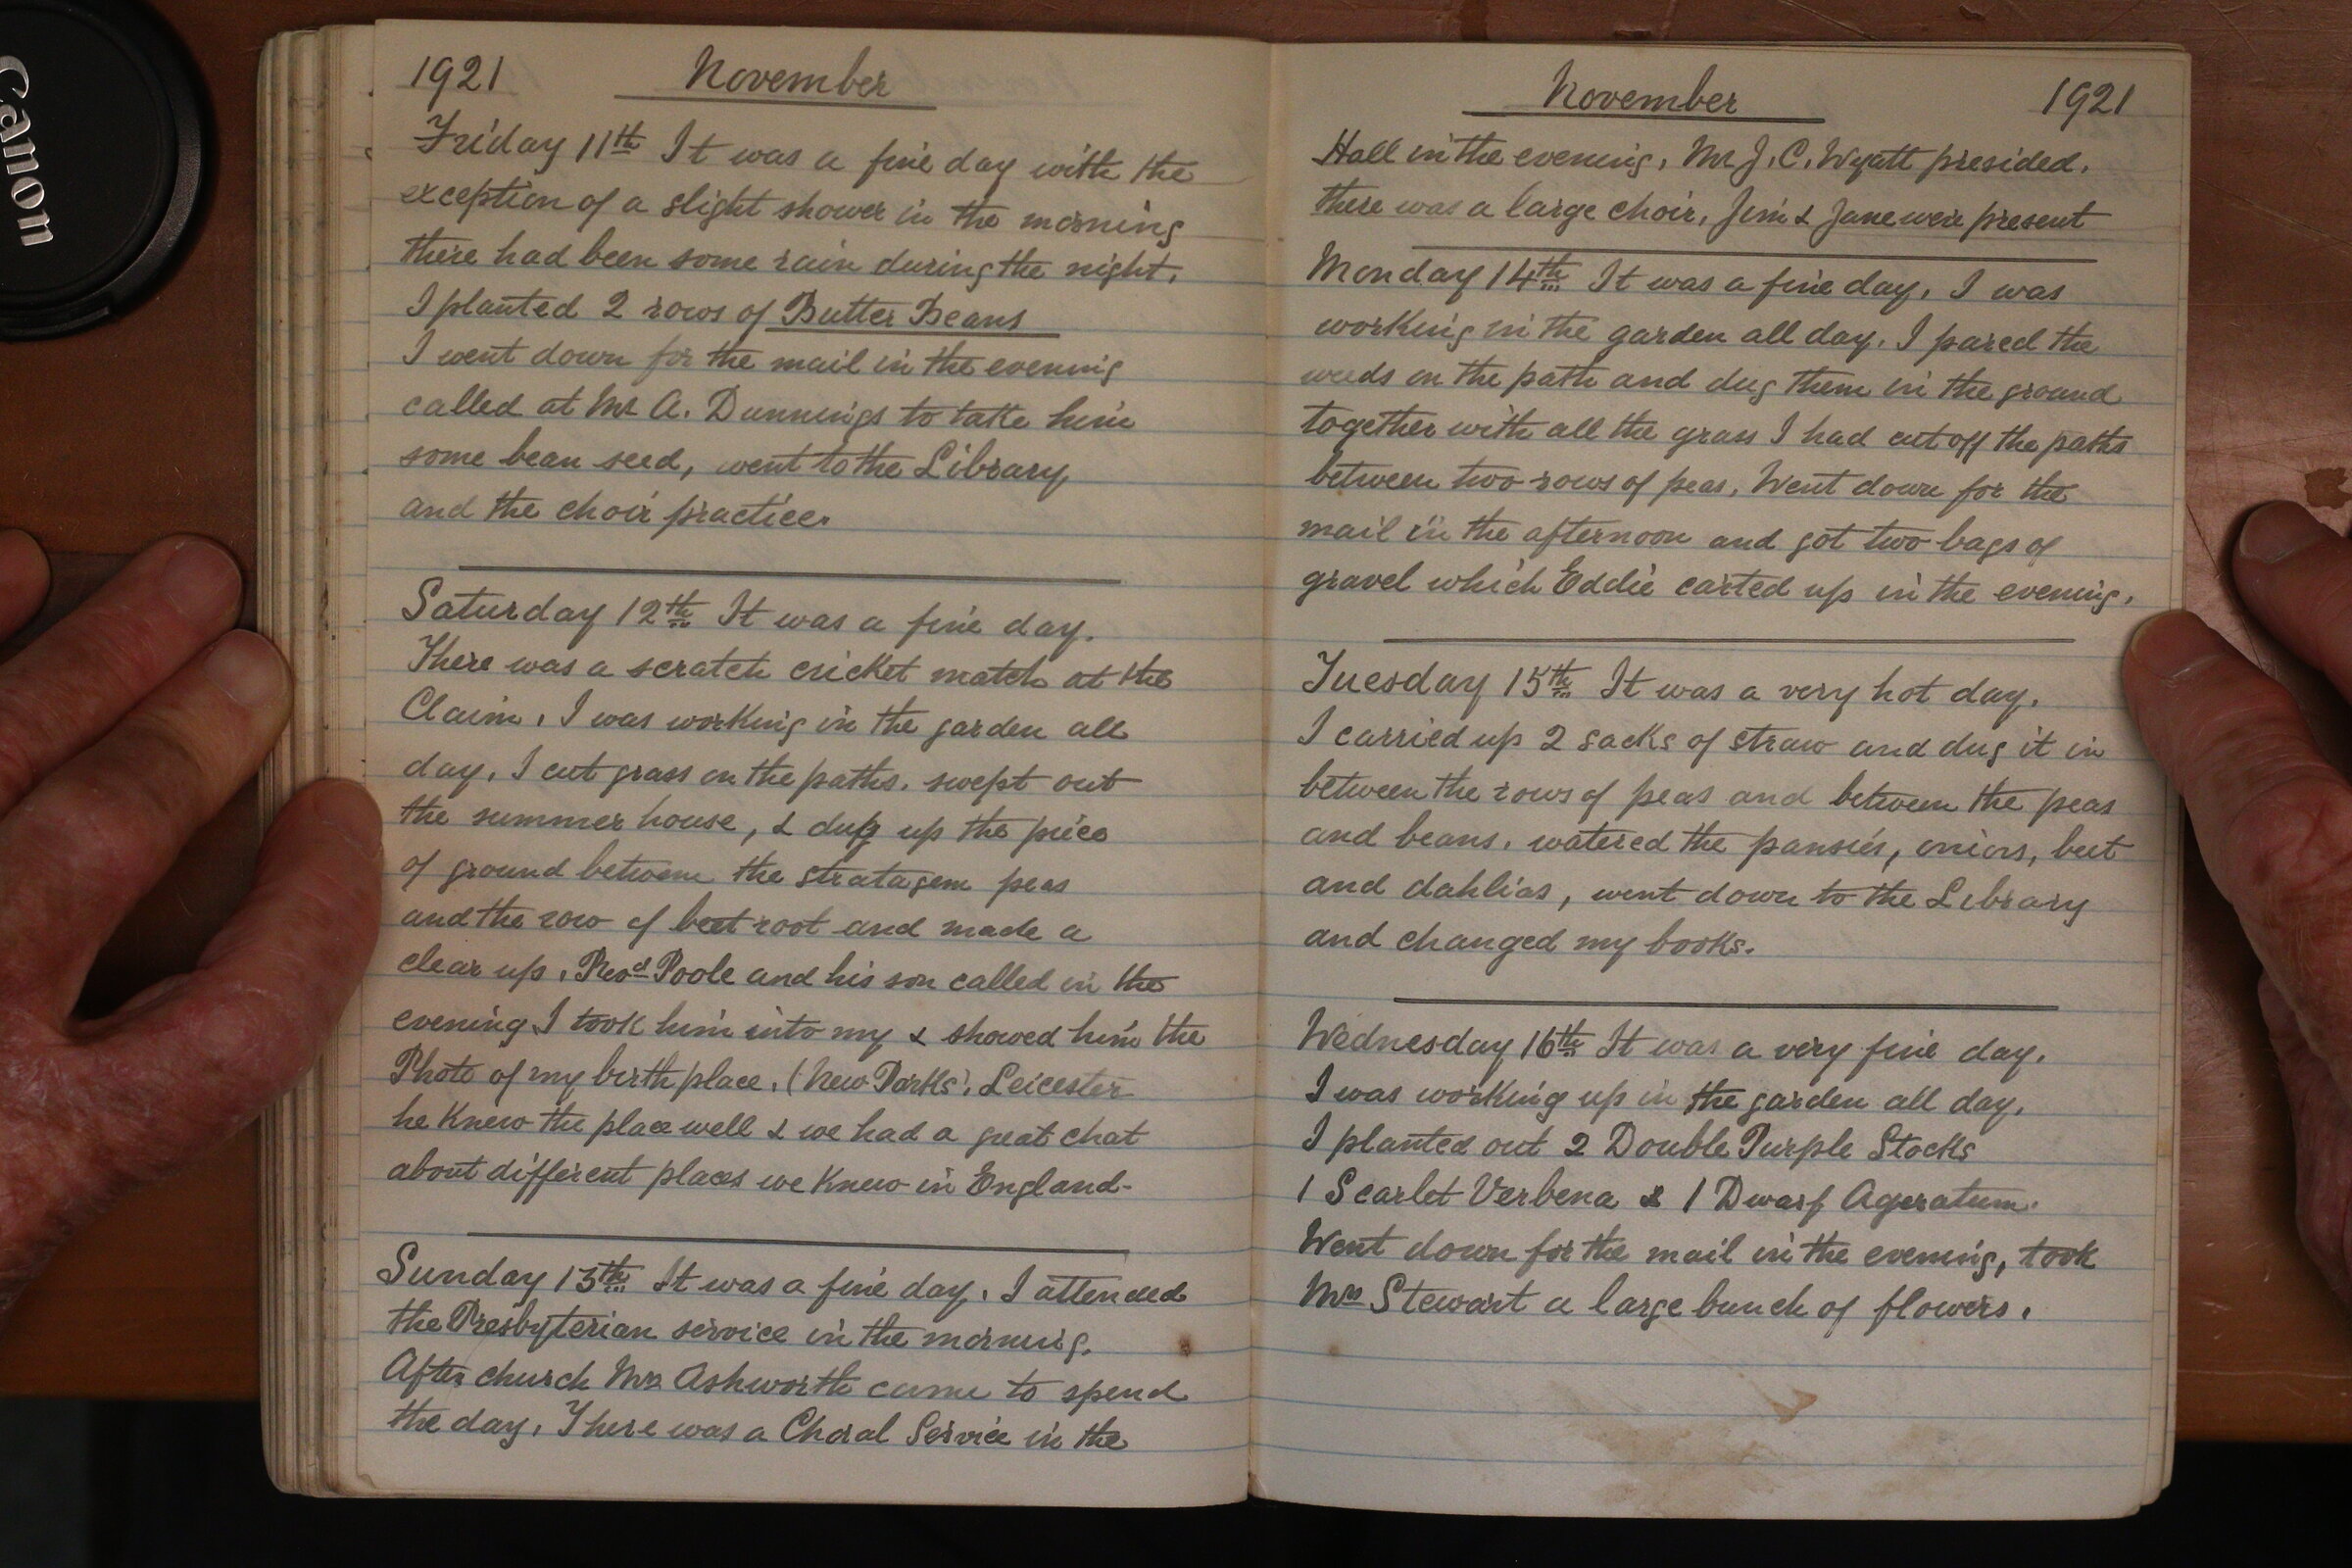 Canon
1921 November
Friday 11th It was a fine day with the
exception of a slight shower in the morning
there had been some rain during the night.
I planted 2 rows of Butter Beans
I went down for the mail in the evening
called at Mr A. Dunnings to take him
some bean seed, went to the Library
and the choir practice.
Saturday 12th It was a fine day.
There was a scratch cricket match at the
Claim. I was working in the garden all
day. I cut grass on the paths. swept out
the summer house, & dug up the piece
of ground between the stratagem peas
and the row of beet root and made a
clear up. Revd Poole and his son called in the
evening I took him into my & showed him the
Photo of my birth place. (New Parks). Leicester
he knew the place well & we had a great chat
about different places we knew in England.
Sunday 13th It was a fine day. I attended
the Presbyterian service in the morning.
After church Mrs Ashworth came to spend
the day. There was a Choral Service in the
November 1921
Hall in the evening. Mr J. C. Wyatt presided.
there was a large choir. Jim & Jane were present
Monday 14th It was a fine day. I was
working in the garden all day. I pared the
weeds on the path and dug them in the ground
together with all the grass I had cut off the paths
between two rows of peas. Went down for the
mail in the afternoon and got two bags of
gravel which Eddie carted up in the evening.
Tuesday 15th It was a very hot day.
I carried up 2 sacks of straw and dug it in
between the rows of peas and between the peas
and beans. watered the pansies, onions, beet
and dahlias, went down to the Library
and changed my books.
Wednesday 16th It was a very fine day.
I was working up in the garden all day.
I planted out 2 Double Purple Stocks
1 Scarlet Verbena & 1 Dwarf Ageratum.
Went down for the mail in the evening, took
Mrs Stewart a large bunch of flowers.